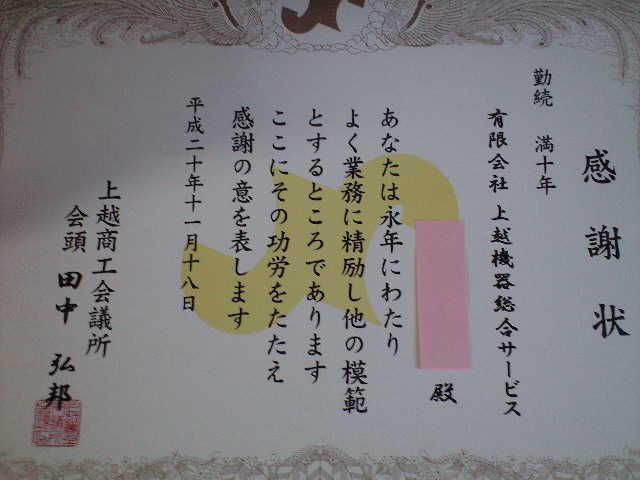 感謝状
勤続 満十年
有限会社 上越機器総合サービス
殿
あなたは永年にわたり
よく業務に精励し他の模範
とするところであります
ここにその功労をたたえ
感謝の意を表します
平成二十年十一月十八日
上越商工会議所
会頭 田中 弘邦